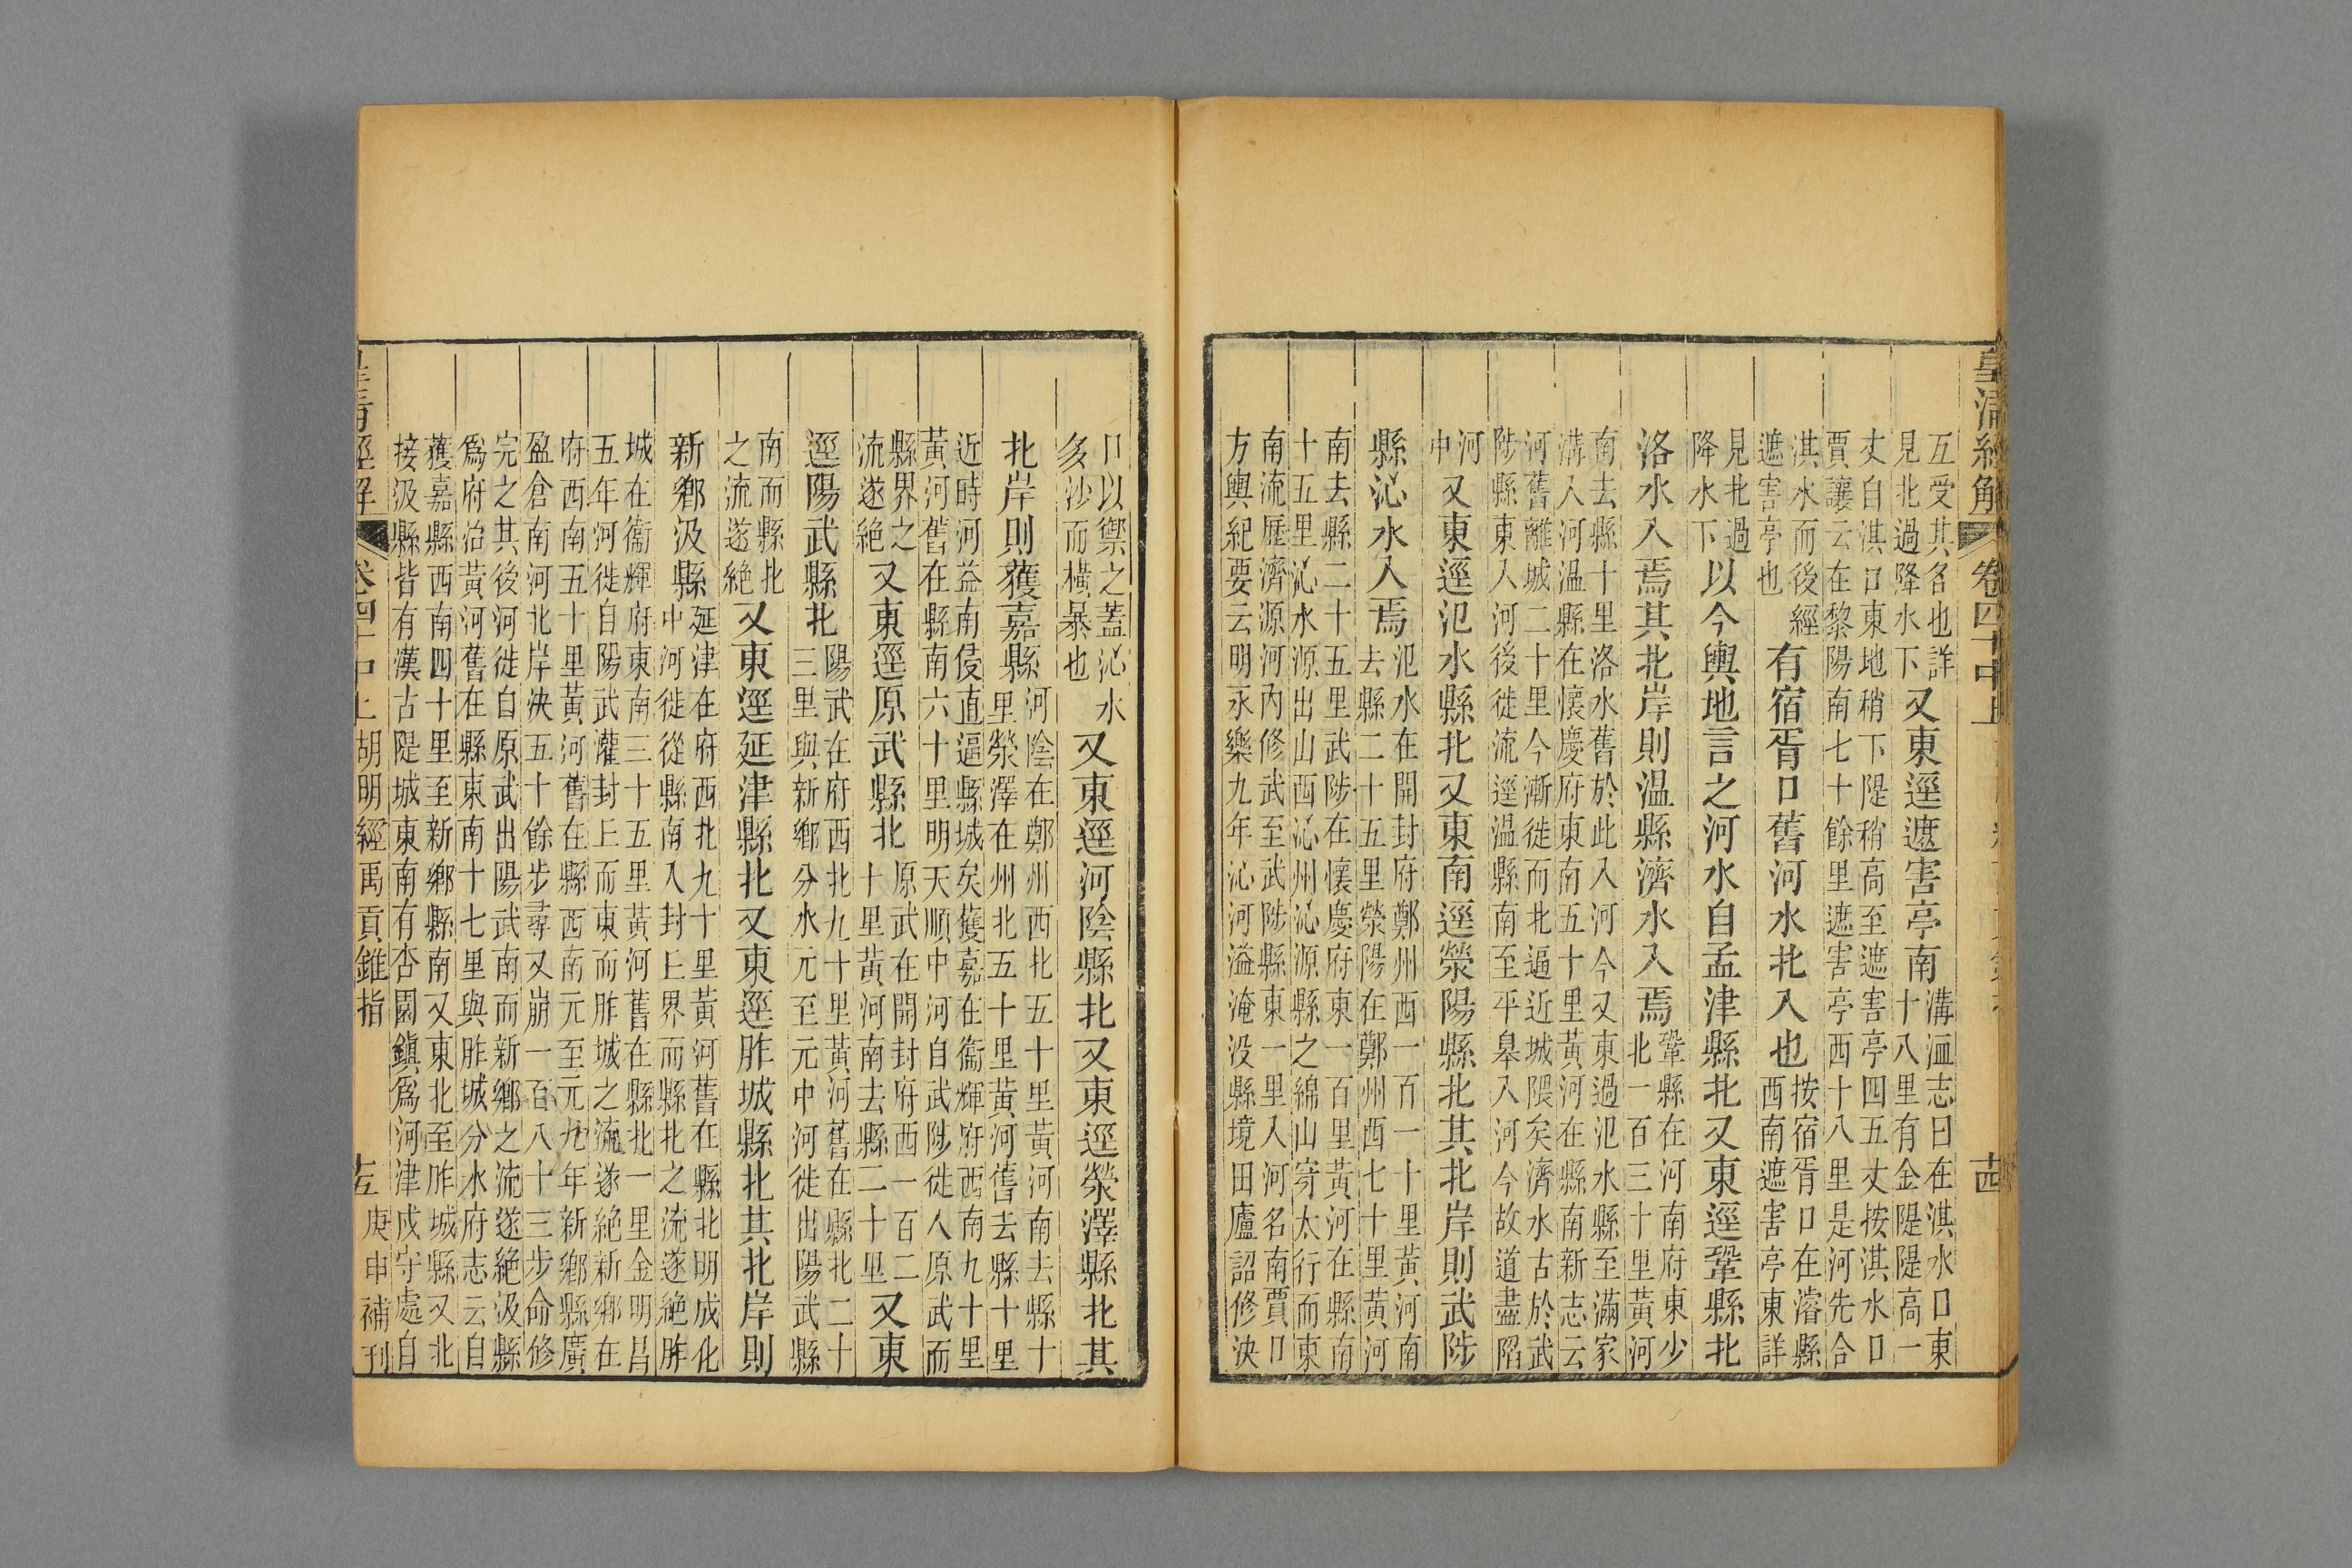 皇清經解 卷四十中上 十四
互受其名也詳
見北過降水下
又東逕遮害亭南
溝洫志曰在淇水口東
十八里有金隄隄高一
丈自淇口東地稍下隄稍高至遮害亭四五丈按淇水口
賈讓云在黎陽南七十餘里遮害亭西十八里是河先合
淇水而後經
遮害亭也
有宿胥口舊河水北入也
按宿胥口在濬縣
西南遮害亭東詳
見北過
降水下
以今輿地言之河水自孟津縣北又東逕鞏縣北
洛水入焉其北岸則温縣濟水入焉
鞏縣在河南府東少
北一百三十里黃河
南去縣十里洛水舊於此入河今又東過氾水縣至滿家
溝入河温縣在懷慶府東南五十里黃河在縣南新志云
河舊離城二十里今漸徙而北逼近城隈矣濟水古於武
陟縣東入河後徙流逕温縣南至平皋入河今故道盡陷
河
中
又東逕氾水縣北又東南逕滎陽縣北其北岸則武陟
縣沁水入焉
氾水在開封府鄭州西一百一十里黃河南
去縣二十五里滎陽在鄭州西七十里黃河
南去縣二十五里武陟在懷慶府東一百里黃河在縣南
十五里沁水源出山西沁州沁源縣之綿山穿太行而東
南流歷濟源河內修武至武陟縣東一里入河名南賈口
方輿紀要云明永樂九年沁河溢淹没縣境田廬詔修決
口以禦之蓋沁水
多沙而橫暴也
又東逕河陰縣北又東逕滎澤縣北其
北岸則獲嘉縣
河陰在鄭州西北五十里黃河南去縣十
里滎澤在州北五十里黃河舊去縣十里
近時河益南侵直逼縣城矣獲嘉在衞輝府西南九十里
黃河舊在縣南六十里明天順中河自武陟徙入原武而
縣界之
流遂絶
又東逕原武縣北
原武在開封府西一百二
十里黃河南去縣二十里
又東
逕陽武縣北
陽武在府西北九十里黃河舊在縣北二十
三里與新鄉分水元至元中河徙出陽武縣
南而縣北
之流遂絶
又東逕延津縣北又東逕胙城縣北其北岸則
新鄉汲縣
延津在府西北九十里黃河舊在縣北明成化
中河徙從縣南入封上界而縣北之流遂絶胙
城在衞輝府東南三十五里黃河舊在縣北一里金明昌
五年河徙自陽武灌封上而東而胙城之流遂絶新鄉在
府西南五十里黃河舊在縣西南元至元九年新鄉縣廣
盈倉南河北岸決五十餘步尋又崩一百八十三步命修
完之其後河徙自原武出陽武南而新鄉之流遂絶汲縣
爲府治黃河舊在縣東南十七里與胙城分水府志云自
獲嘉縣西南四十里至新鄉縣南又東北至胙城縣又北
接汲縣皆有漢古隄城東南有杏園鎮爲河津戍守處自
皇清經解 卷四十中上 胡明經禹貢錐指 十五 庚申補刊